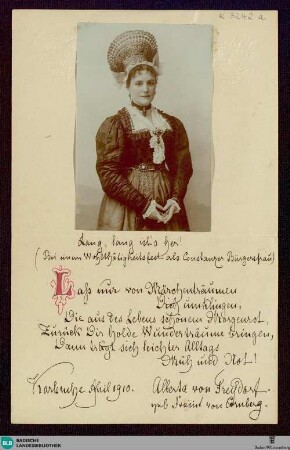 K 3242 a
Lang, lang ist's her!
(Bei einem Wohlthätigkeitsfest als Constanzer Bürgersfrau)
Laß nur von Märchenträumen
Dich umklingen,
Die aus des Lebens schönem Morgenrot
Zurück Dir holde Wunderträume bringen,
Dann trägt sich leichter Alltags
Müh und Not!
Karlsruhe April 1910.
Alberta von Freydorf
geb Freiin von Cornberg.
BLB
BADISCHE
LANDESBIBLIOTHEK